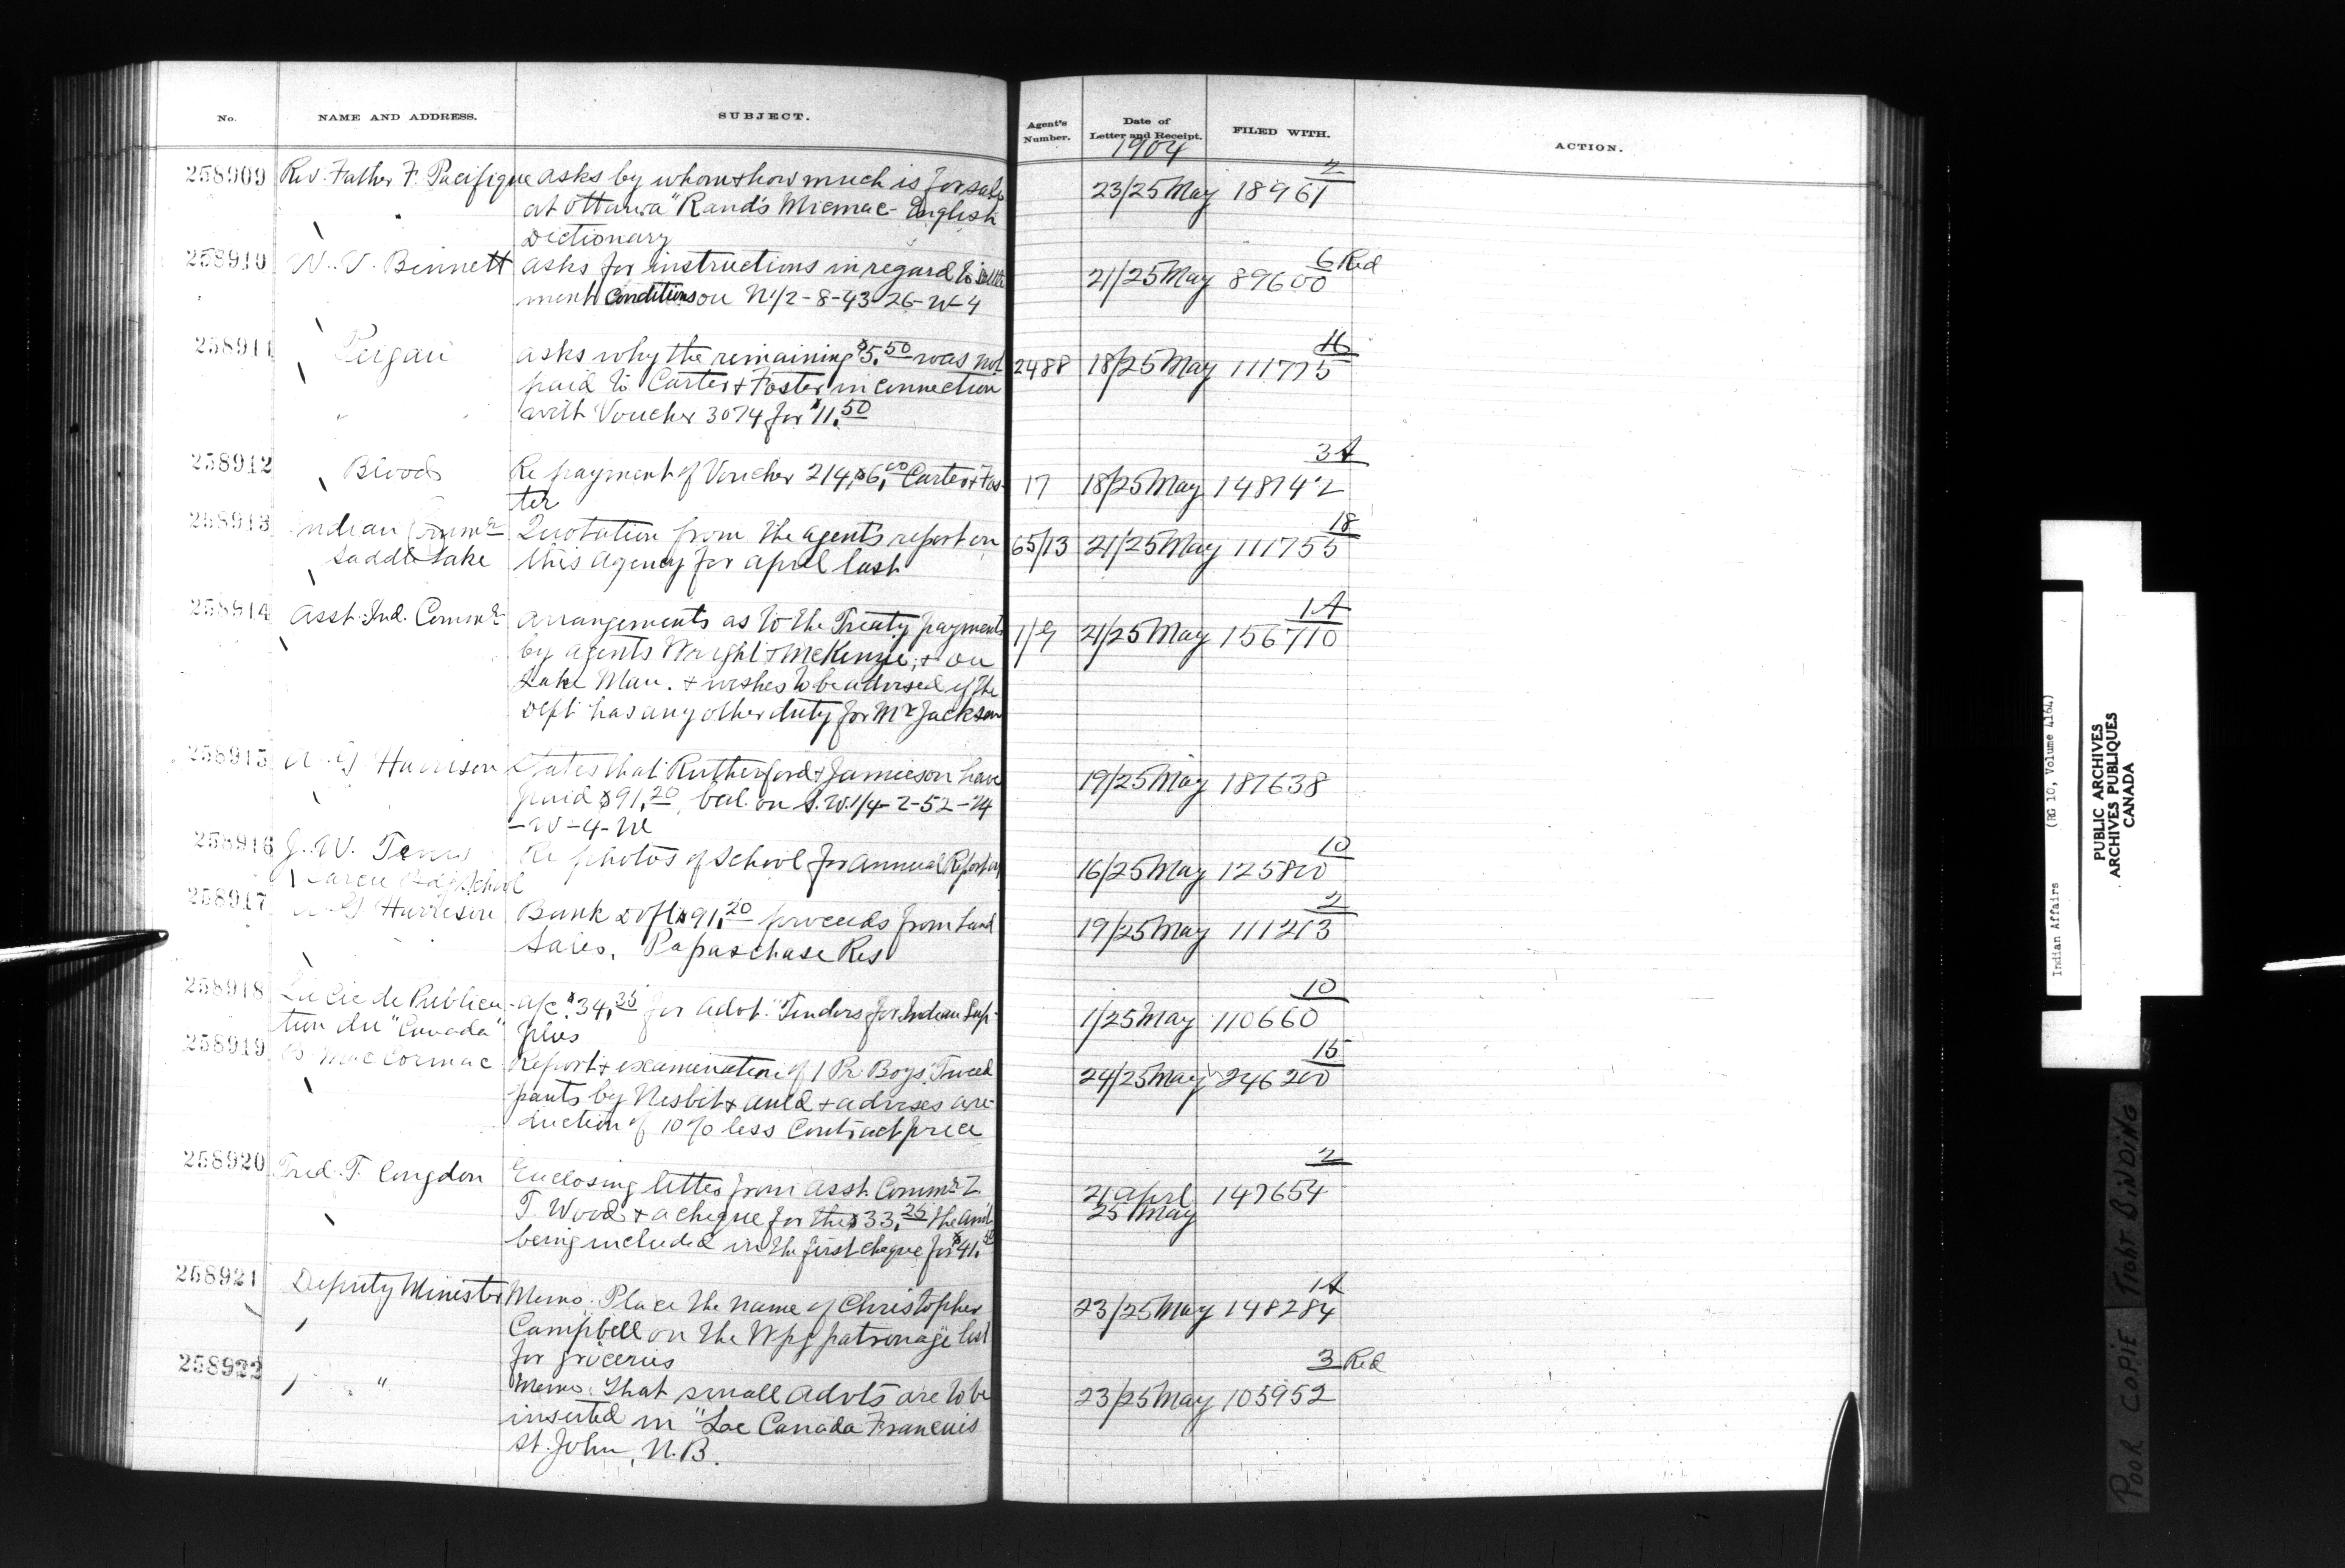 No. NAME AND ADDRESS. SUBJECT. Agent's Number. Date of Letter and Receipt. FILED WITH. ACTION.
1904
258909 Rev. Father F. Pacifique asks by whom & how much is for sale 23/25 May 18961 2
at Ottawa "Rand's Micmac-English
Dictionary
258910 N. V. Bennett asks for instructions in regard to settle 21/25 May 89600 6 Red
ment conditions on N 1/2-8-43-26-W-4
258911 Peigan asks why the remaining $5.50 was not 2488 18/25 May 111775
paid to Carter & Foster in connection
with Voucher 3074 for $11.50
258912 Blood Re payment of Voucher 214, $6.00 Carter & Fos- 17 18/25 May 148742 3A
ter
258913 Indian Commr Quotation from the agents report on 65/13 21/25 May 111755 18
Saddle Lake this agency for april last
258914 Asst. Ind. Commr arrangements as to the Treaty payments 1/9 21/25 May 156710 1A
by agents Wright & McKenzie, & on
Lake Man. & wishes to be advised if the
Dept has any other duty for Mr Jackson
258915 A. G Harrison States that Rutherford & Jamieson have 19/25 May 187638
paid $91.20, bal. on S.W. 1/4-2-52-24
-W-4-M
258916 J. W. Re photos of School for annual Report 16/25 May 125800 10
School
258917 A G Harrison Bank Dft $91.20 proceeds from Land 19/25 May 111213 2
Sales. Papaschase Res
258918 La Cie de Publica- a/c. $34.35 for advt. "Tenders for Indian Sup- 1/25 May 110660 10
tion du "Canada" plies
258919 B MacCormac Report & examination of 1 Pr. Boys Tweed 24/25 May 246200 15
pants by Nesbit & Auld & advises a re-
duction of 10% less Contract price
258920 Fred. T. Congdon Enclosing letter from asst. Commr Z. 21 april 147654 2
T. Wood & a cheque for the $33.25 the amt 25 May
being included in the first cheque for $41.
258921 Deputy Minister Memo. Place the name of Christopher 23/25 May 148284 1A
Campbell on the Wpg patronage list
for groceries
258922 " Memo. That small advts are to be 23/25 May 105952 3 Red
inserted in "Loe Canada Francais
St. John, N.B.
Indian Affairs (RG 10, Volume 4164)
PUBLIC ARCHIVES
ARCHIVES PUBLIQUES
CANADA
POOR COPIE TIGHT BINDING